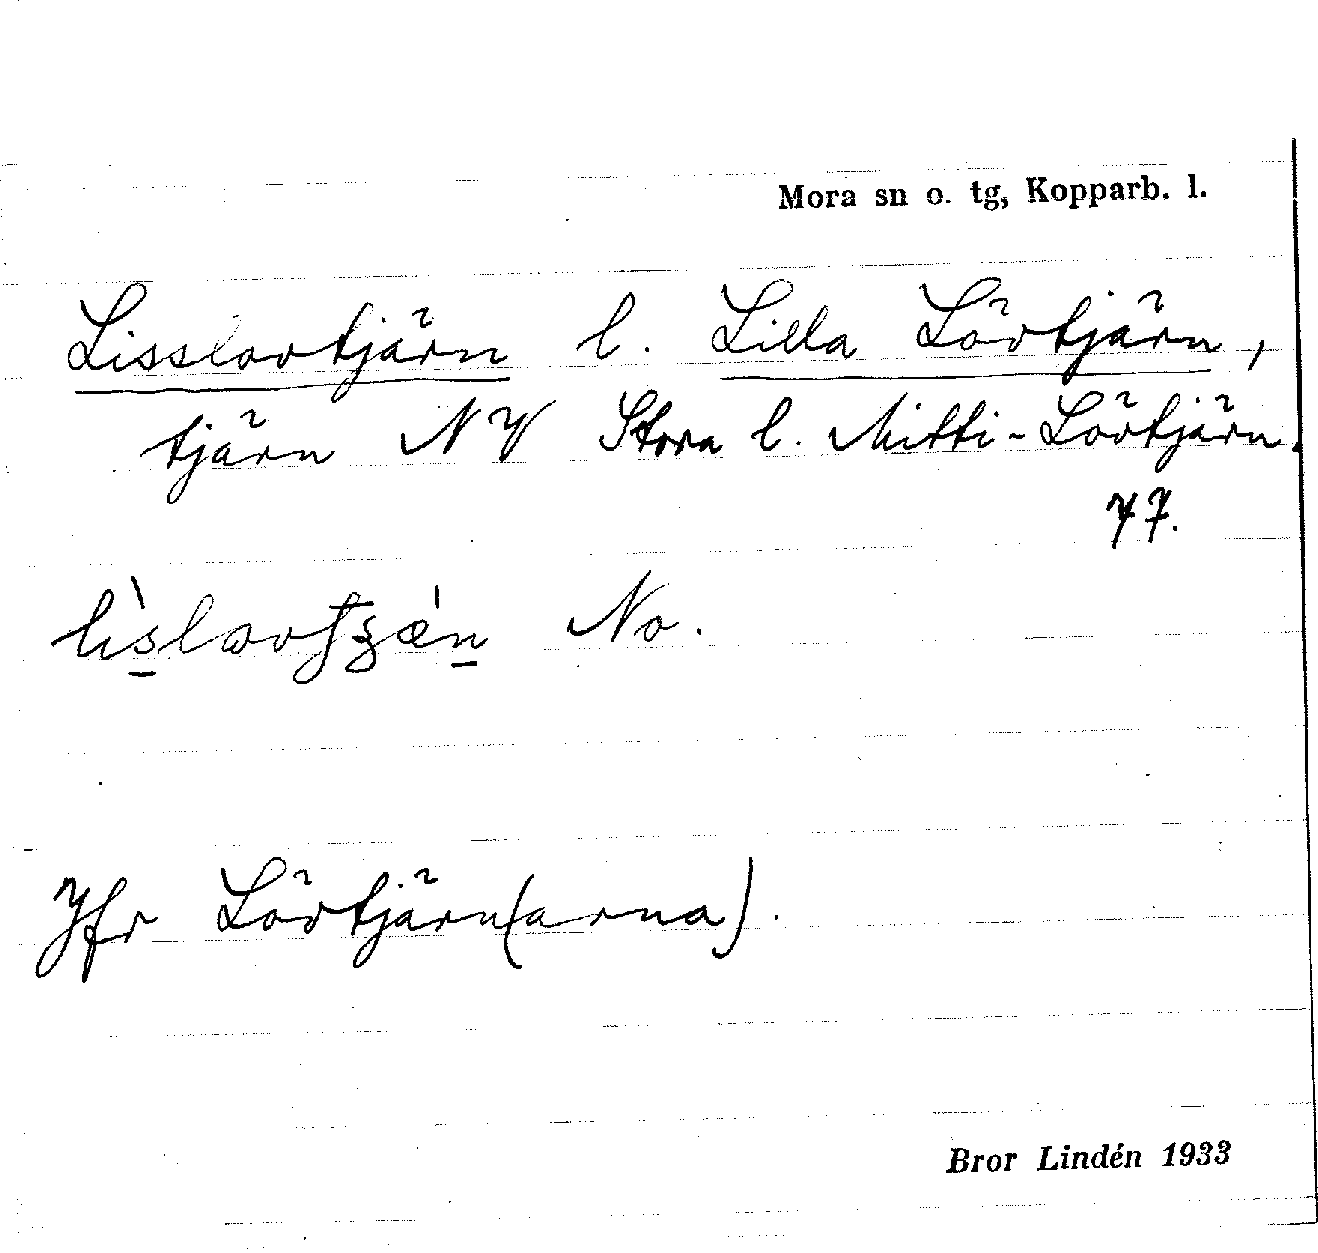 Mora sn o. tg, Kopparb. l.
Lisslovtjärn l. Lilla Lövtjärn,
tjärn NV Stora l. Mitti-Lövtjärn.
77.
No.
Jfr Lövtjärn(arna).
Bror Lindén 1933